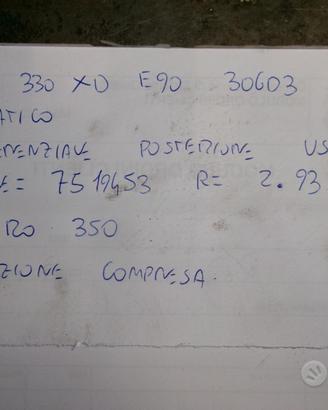 330 XD E90 306D3
ATICO
ERENZIALE POSTERIORE US
E= 7519453 R= 2.93
RO 350
ZIONE COMPRESA.